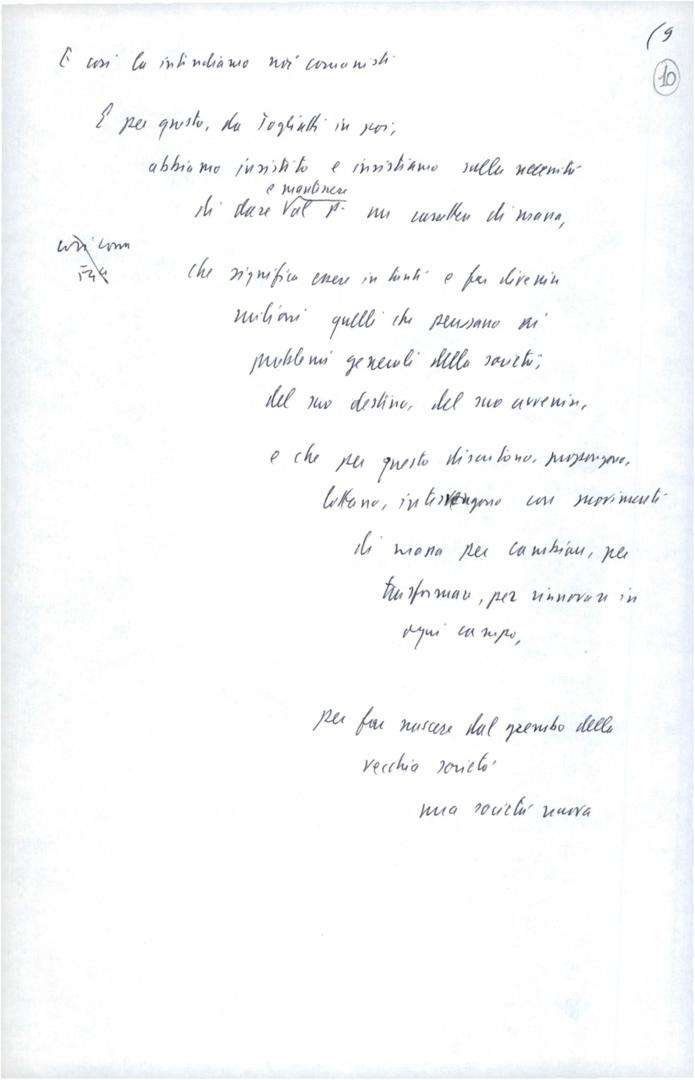 (9
10
E così la intendiamo noi comunisti
E per questo, da Togliatti in poi,
abbiamo insistito e insistiamo sulla necessità
e mantenere
di dare al p. un carattere di massa,
così com
che significa essere in tanti e far divenire
milioni quelli che pensano ai
problemi generali della società,
del suo destino, del suo avvenire,
e che per questo discutono, propongono,
lottano, intervengono con movimenti
di massa per cambiare, per
trasformare, per rinnovare in
ogni campo,
per far nascere dal grembo della
vecchia società
una società nuova